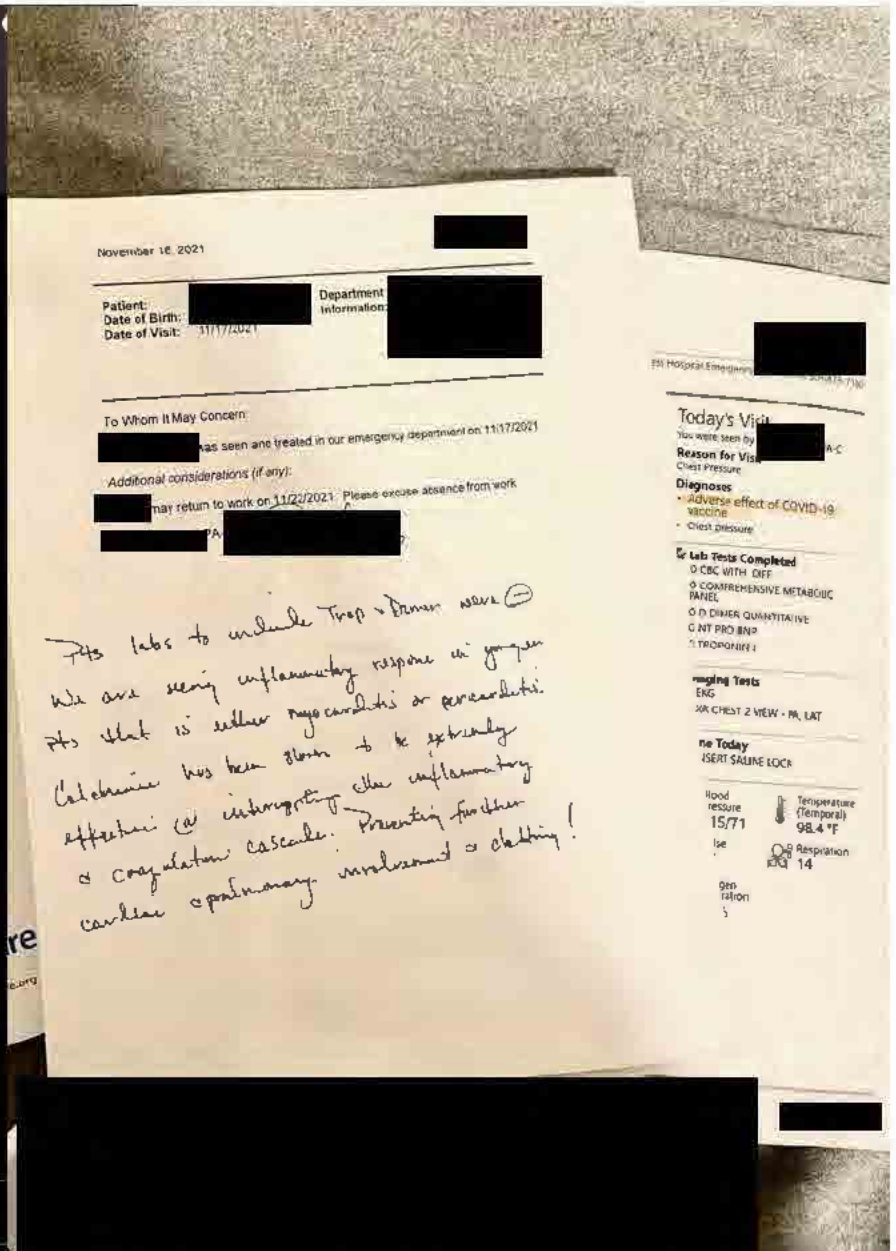 November 16, 2021
Patient:
Date of Birth:
Date of Visit: 11/17/2021
Department
Information:
To Whom It May Concern:
was seen and treated in our emergency department on 11/17/2021
Additional considerations (if any):
may return to work on 11/22/2021. Please excuse absence from work
PA-
Pts labs to include Trop & Dimer were ⊖
We are seeing inflammatory response in younger
pts that is either myocarditis or pericarditis.
Colchicine has been shown to be extremely
effective @ interrupting the inflammatory
& coagulation cascade. Preventing further
cardiac & pulmonary involvement & clotting!
re
e.org
Hospital Emergency
Today's Visit
You were seen by A-C
Reason for Visit
Chest Pressure
Diagnoses
• Adverse effect of COVID-19
vaccine
• Chest pressure
Lab Tests Completed
CBC WITH DIFF
COMPREHENSIVE METABOLIC
PANEL
D DIMER QUANTITATIVE
NT PRO BNP
TROPONIN I
maging Tests
EKG
XR CHEST 2 VIEW - PA, LAT
ne Today
NSERT SALINE LOCK
lood
ressure
15/71
lse
gen
ration
Temperature
(Temporal)
98.4 °F
Respiration
14